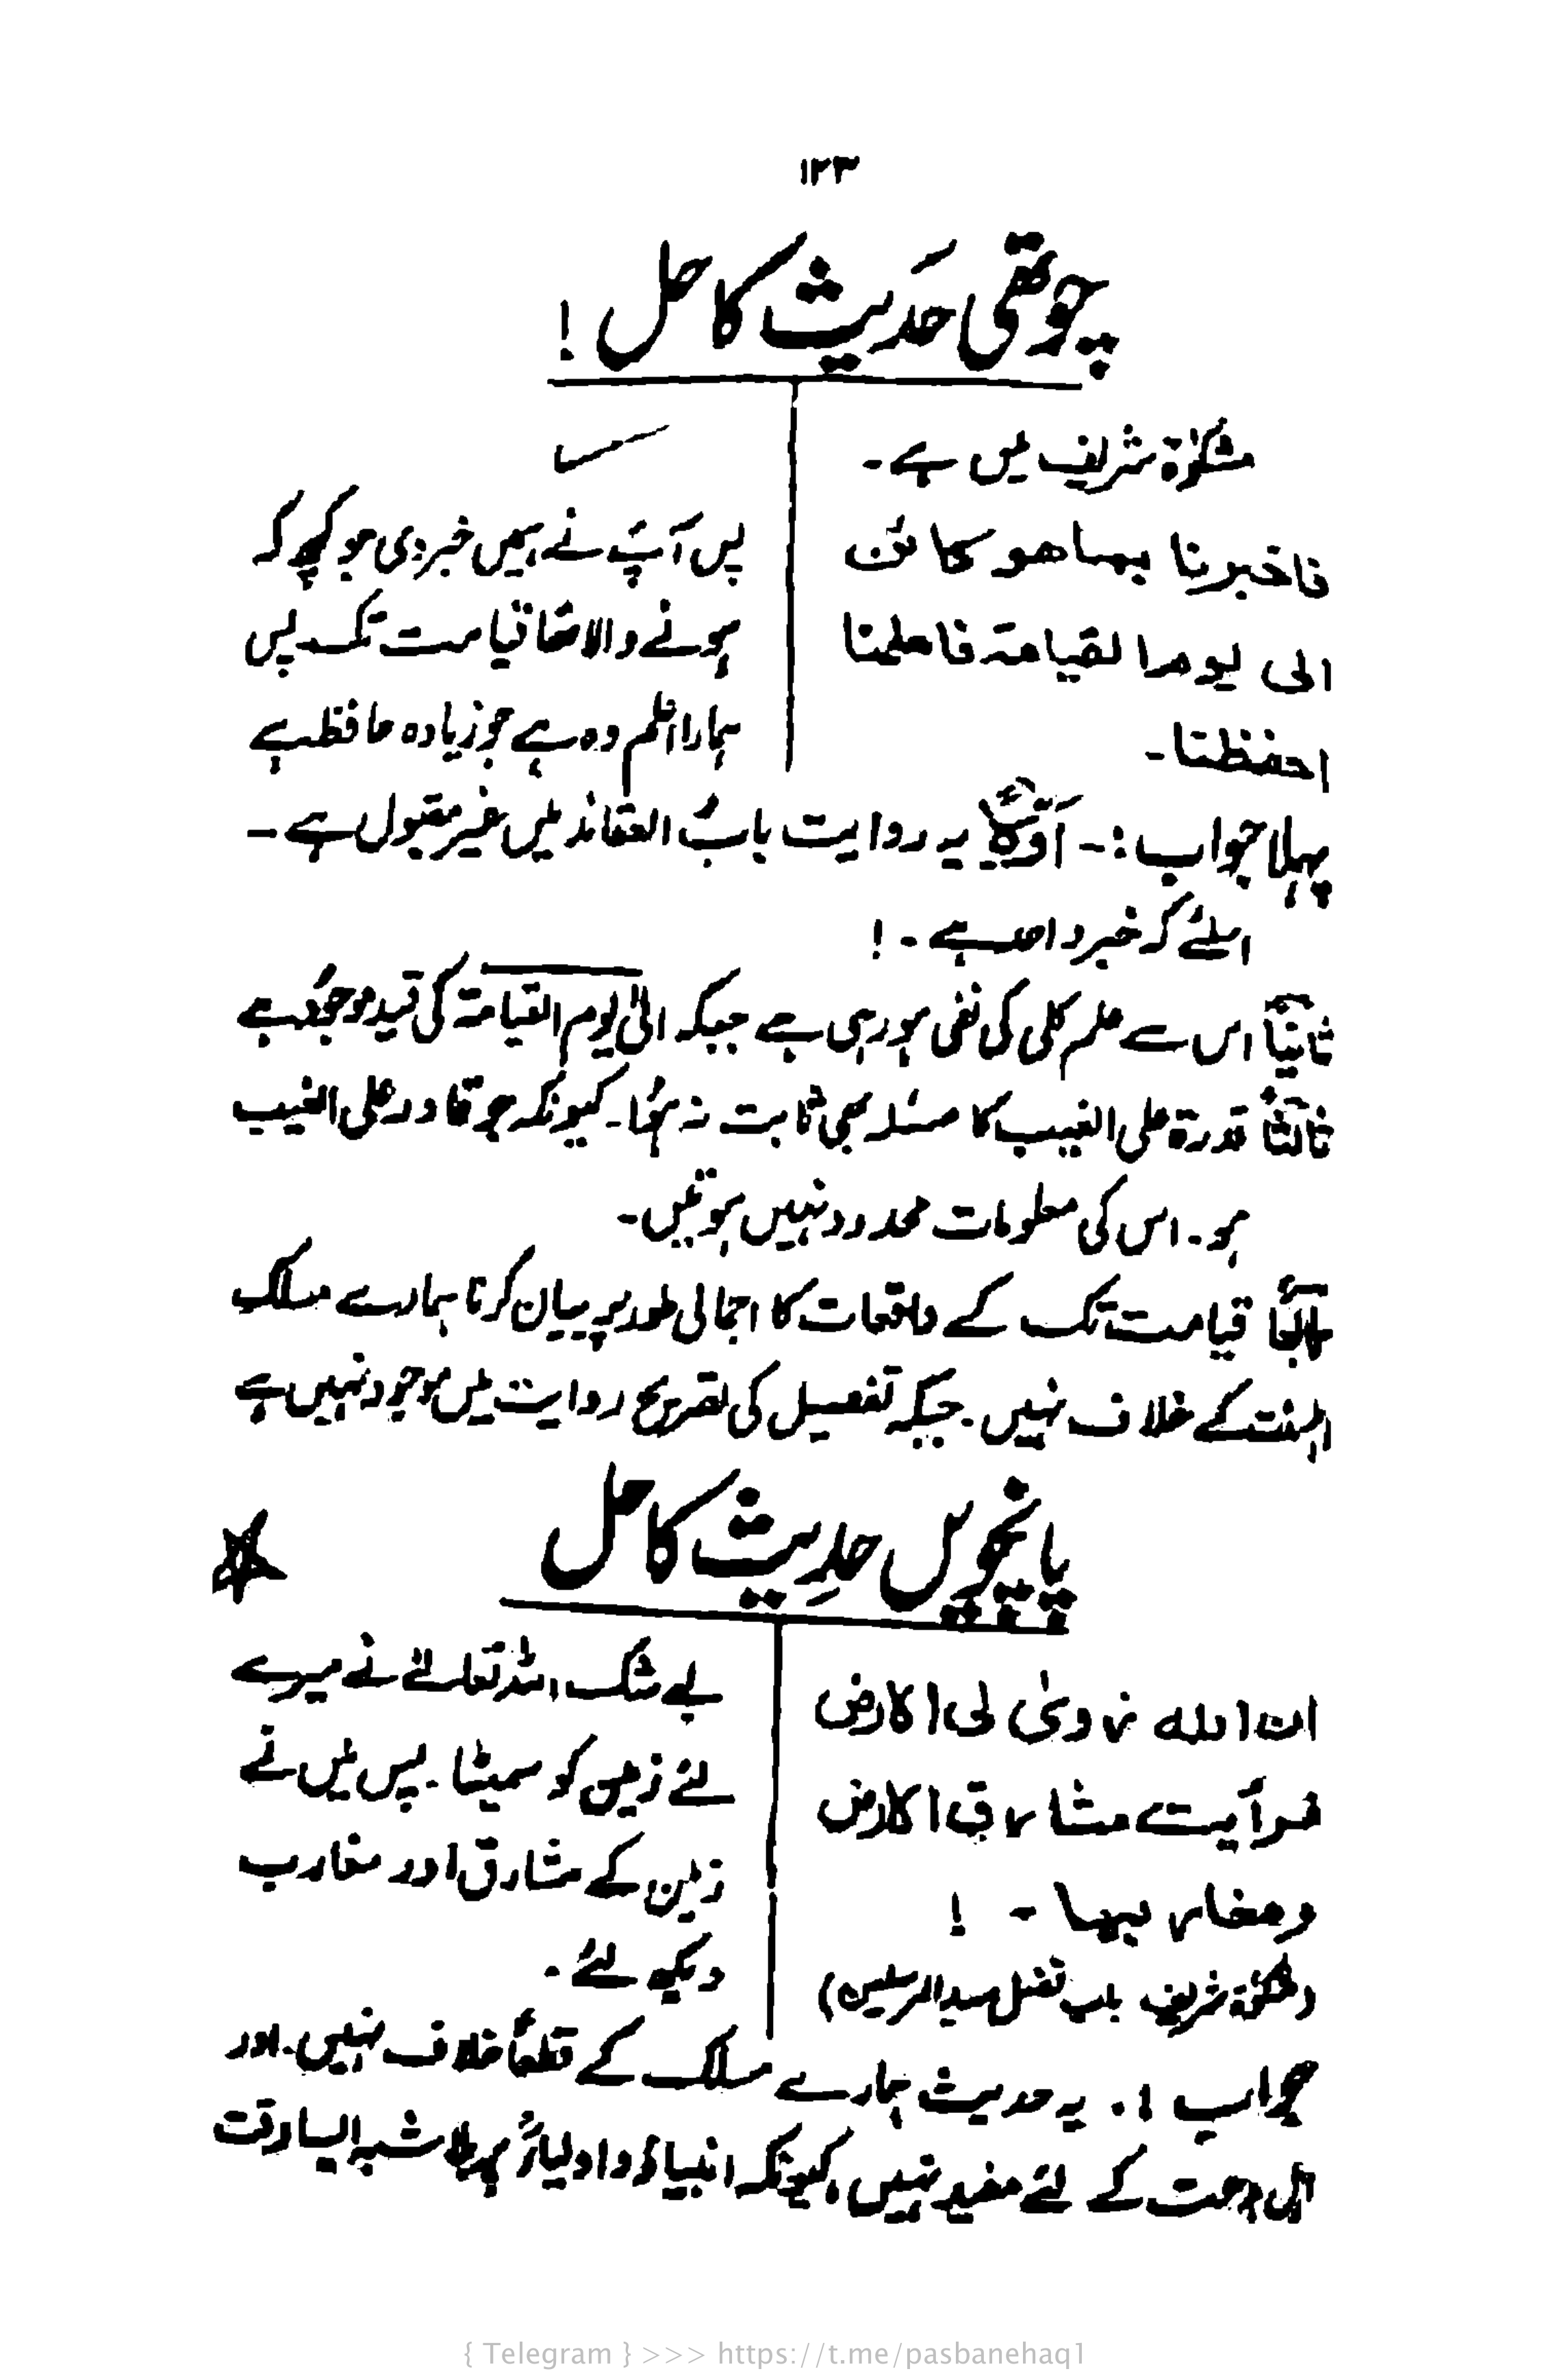 ۱۲۳
چوتھی حَدیث کا حل !
مشکوٰۃ شریف میں ہے ۔
فاخبرنا بما هو کائن
الی یوم القیامة فاعلمنا
احفظنا ۔
پس آپؐ نے ہمیں خبر دی جو کچھ کہ
ہونے والا تھا قیامت تک پس
ہمارا اعلم وہ ہے جو زیادہ حافظ ہے
پہلا جواب :۔ اوّلاً یہ روایت بابُ العقائد میں غیر مقبول ہے ۔
اسلئے کہ خبر واحد ہے ۔ !
ثانیاً اس سے علم کلی کی نفی ہو رہی ہے جبکہ الیٰ یوم القیامة کی قید موجود ہے
ثالثاً قدرة علی الغیب کا مسئلہ بھی ثابت نہ ہُوا ۔ کیونکہ جو قادر علی الغیب
ہو ۔ اس کی معلومات محدود نہیں ہوتیں ۔
رابعاً قیامت تک کے واقعات کا اجمالی طور پر بیان کرنا ہمارے مسلک
اہلسنت کے خلاف نہیں ۔ جبکہ تفصیل کی تصریح روایت میں موجود نہیں ہے
پانچویں حدِیث کا حل
ان الله زوىٰ لی الارض
فرأیت مشارق الارض
ومغاربها ۔ !
(مشکوٰۃ شریف باب فضل سید المرسلین)
بے شک اللہ تعالےٰ نے میرے
لئے زمین کو سمیٹا ۔ پس میں نے
زمین کے مشارق اور مغارب
دیکھ لئے ۔
جواب ۱ . یہ حدیث ہمارے مسلک کے قطعاً خلاف نہیں ۔ اور
اہل بدعت کے لئے مفید نہیں ، کیونکہ انبیاءؑ و اولیاءؒ پر بلا شبہ ایسا وقت
{ Telegram } >>> https://t.me/pasbanehaq1